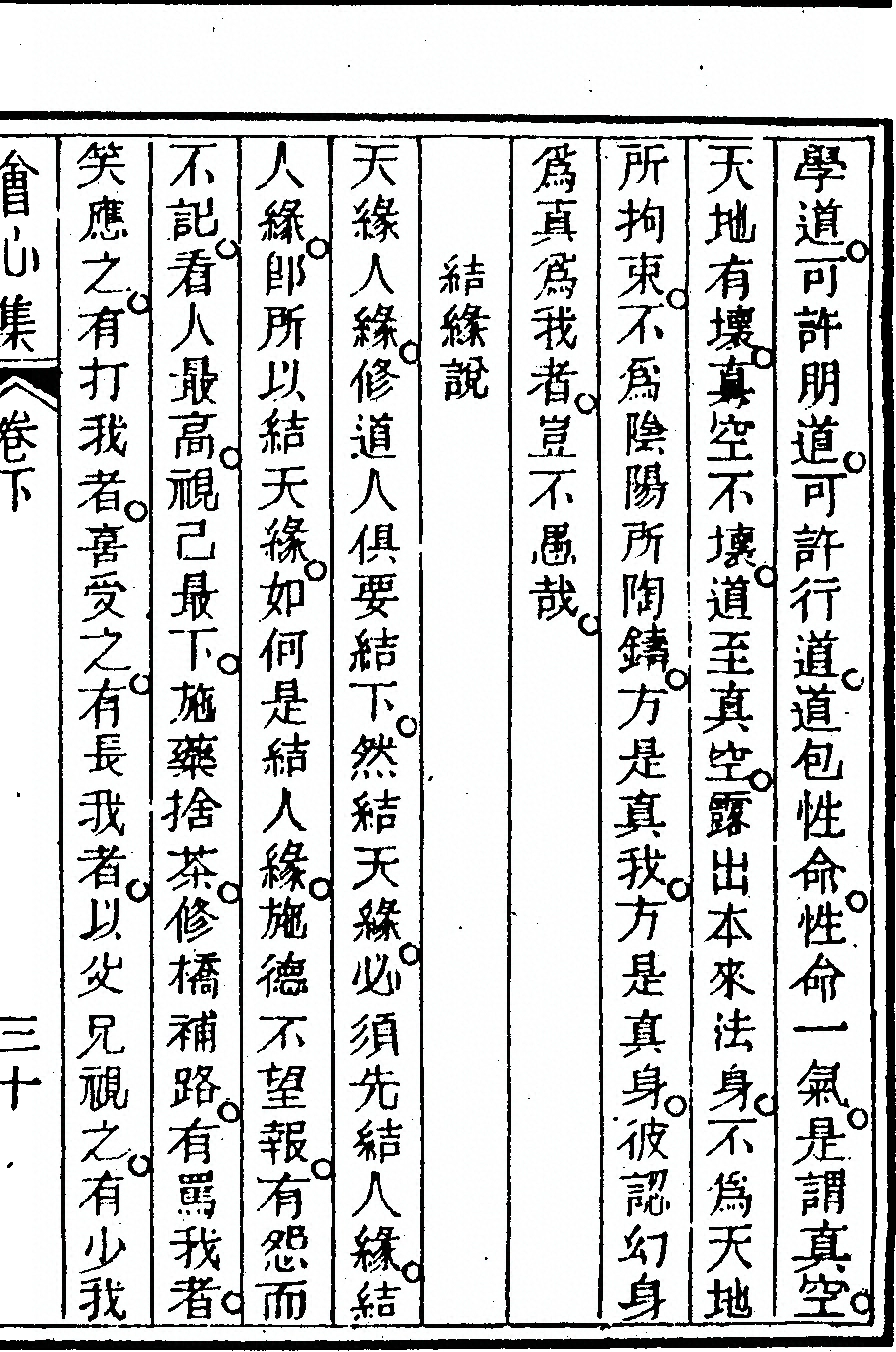 學道。可許朋道。可許行道。道包性命。性命一氣。是謂真空。
天地有壞。真空不壞。道至真空。露出本來法身。不爲天地
所拘束。不爲陰陽所陶鑄。方是真我。方是真身。彼認幻身
爲真爲我者。豈不愚哉。
結緣說
天緣人緣。修道人俱要結下。然結天緣。必須先結人緣。結
人緣。即所以結天緣。如何是結人緣。施德不望報。有怨而
不記。看人最高。視己最下。施藥捨茶。修橋補路。有罵我者。
笑應之。有打我者。喜受之。有長我者。以父兄視之。有少我
會心集 卷下 三十